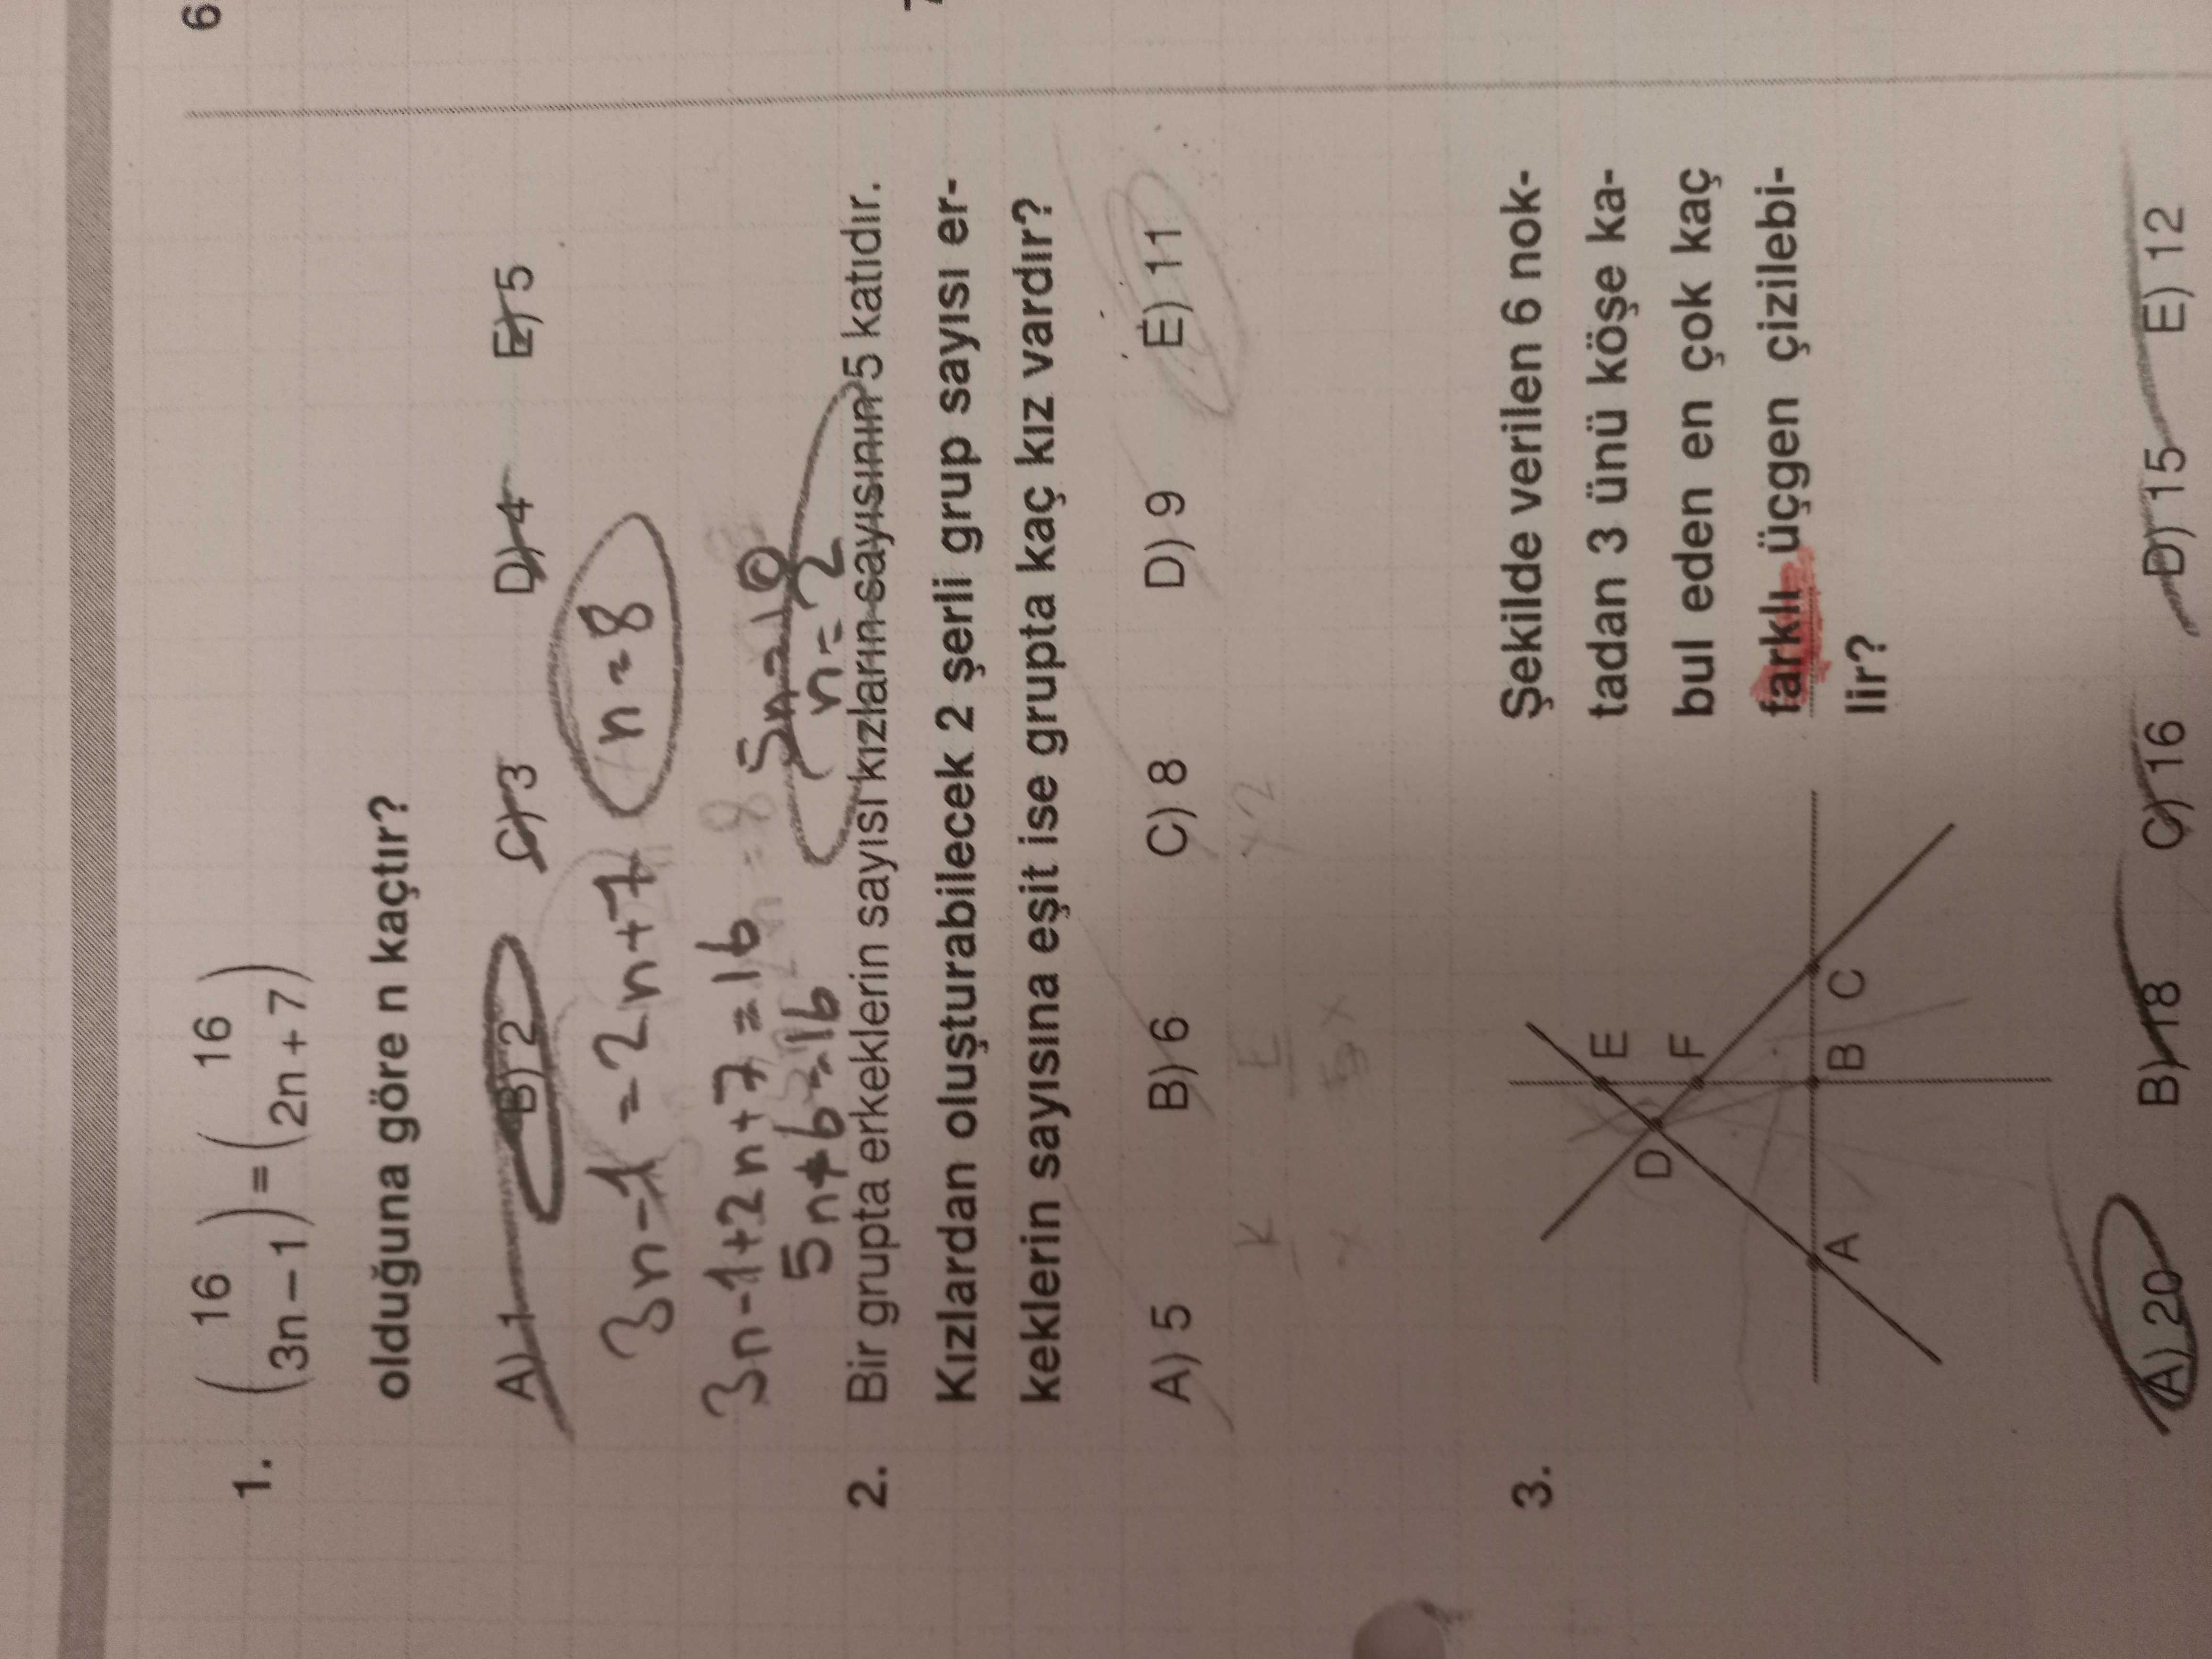 6
7
1. (16 / 3n − 1) = (16 / 2n + 7)
olduğuna göre n kaçtır?
A) 1 B) 2 C) 3 D) 4 E) 5
3n-1=2n+7 n=8
3n-1+2n+7=16
5n+6=16
5n=10
n=2
2. Bir grupta erkeklerin sayısı kızların sayısının 5 katıdır.
Kızlardan oluşturabilecek 2 şerli grup sayısı er-
keklerin sayısına eşit ise grupta kaç kız vardır?
A) 5 B) 6 C) 8 D) 9 E) 11
K E
x 5x
3.
E
D
F
A B C
Şekilde verilen 6 nok-
tadan 3 ünü köşe ka-
bul eden en çok kaç
farklı üçgen çizilebi-
lir?
A) 20 B) 18 C) 16 D) 15 E) 12